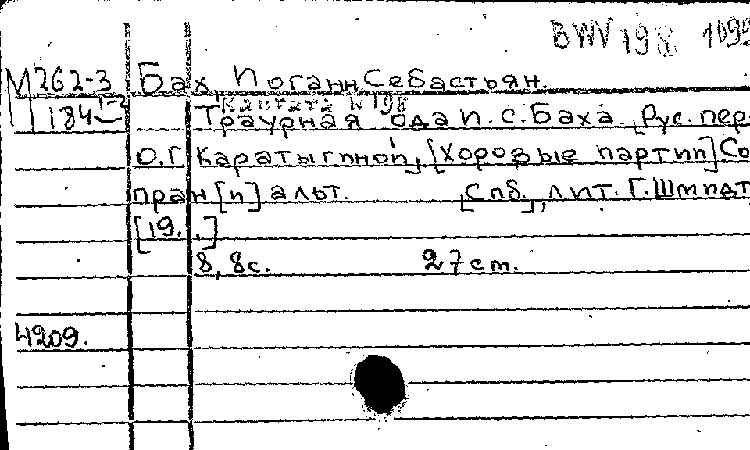 BWV 198 1099
М262-3 Бах, Иоганн Себастьян.
Кантата №198
1184 Траурная ода И.С. Баха. [Рус. пер.
О.Г. Каратыгиной], [Хоровые партии] Со
пран [и] альт. [Спб.], лит. Г. Шмидт
[19..]
8, 8с. 27 cm.
4209.